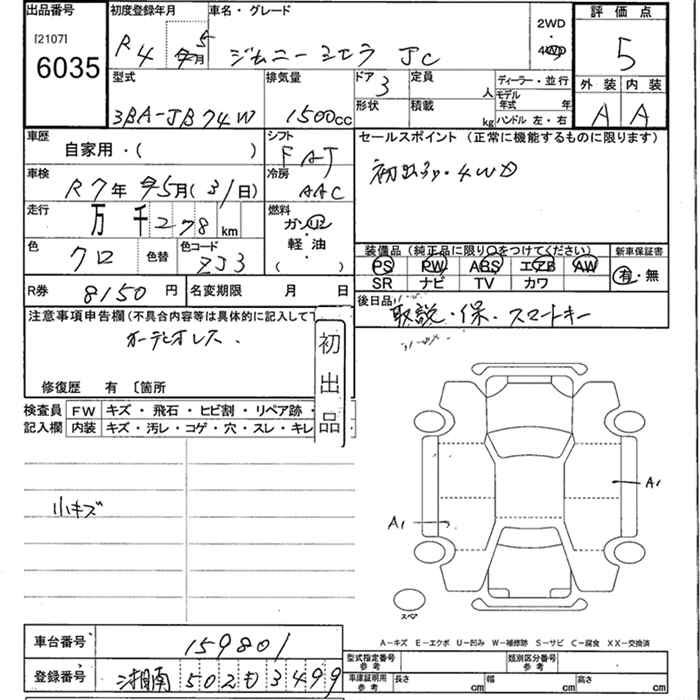 出品番号 初度登録年月 車名・グレード 2WD・4WD 評価点
[2107]
6035 R4年5月 ジムニーシエラ JC 5
型式 排気量 ドア 定員 人 ディーラー・並行
3BA-JB74W 1500cc 3 モデル年式 年 外装 内装
形状 積載 kg ハンドル 左・右 A A
車歴 シフト セールスポイント (正常に機能するものに限ります)
自家用・( ) FAT 初出品・4WD
車検 冷房
R7年5月(31日) AAC
走行 燃料
万 千278km ガソリン・軽油( )
色 色替 色コード 装備品 (純正品に限り○をつけてください) 新車保証書
クロ ZJ3 PS PW ABS エアB AW 有・無
SR ナビ TV カワ
R券 8150円 名変期限 月 日 後日品
取説・保・スマートキー
注意事項申告欄 (不具合内容等は具体的に記入して下
オーディオレス.
初出品
修復歴 有 〔箇所
検査員 FW キズ・飛石・ヒビ割・リペア跡・
記入欄 内装 キズ・汚レ・コゲ・穴・スレ・キレ
小キズ
A1
A1
スペア
A-キズ E-エクボ U-凹み W-補修跡 S-サビ C-腐食 XX-交換済
車台番号 159801 型式指定番号 参考 類別区分番号 参考
登録番号 湘南502も3499 車庫証明用 参考 長さ cm 幅 cm 高さ cm